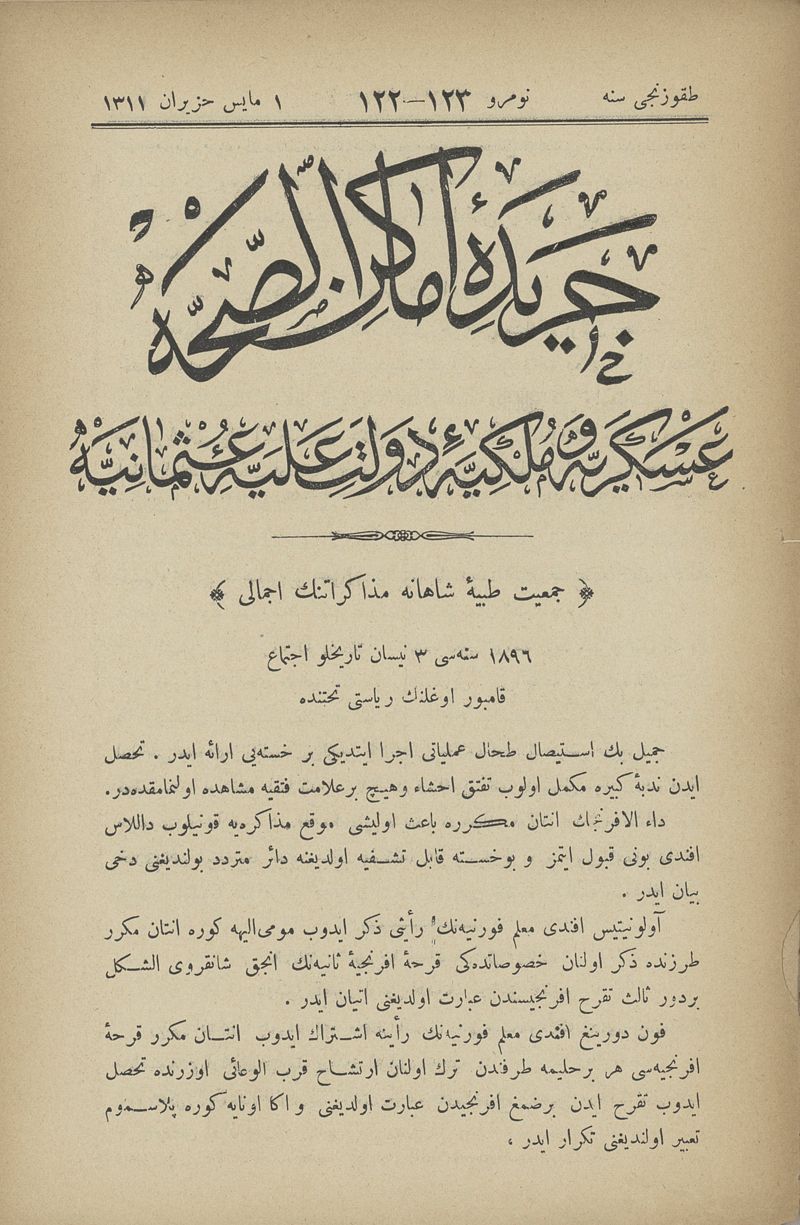 طقوزنجی سنه نومرو ١٢٣—١٢٢ ١ مایس حزیران ١٣١١
جریدهٔ اماکن الصحه
عسکریه و ملکیهٔ دولت علیه عثمانیه
﴿ جمعیت طبیهٔ شاهانه مذاکراتنك اجمالی ﴾
١٨٩٦ سنه‌سی ٣ نیسان تاریخلو اجتماع
قامبور اوغلنك ریاستی تحتنده
جمیل بك استیصال طحال عملیاتی اجرا ایتدیکی بر خسته‌یی ارائه ایدر . تحصل
ایدن ندبهٔ کبیره مکمل اولوب تفتق احشاء وهیچ برعلامت فتقیه مشاهده اولنمامقده‌در.
داء الافرنجك انتان مکرره باعث اولیشی موقع مذاکره‌یه قونیلوب داللاس
افندی بونی قبول ایتمز و بوخسته قابل تشفیه اولدیغنه دائر متردد بولندیغنی دخی
بیان ایدر .
آولونیتیس افندی معلم فورنیه‌نك رأینی ذکر ایدوب مومی‌الیهه کوره انتان مکرر
طرزنده ذکر اولنان خصوصاتده‌کی قرحهٔ افرنجیهٔ ثانیه‌نك انجق شانقروی الشکل
بردور ثالث تقرح افرنجیسندن عبارت اولدیغنی اتیان ایدر .
فون دورینغ افندی معلم فورنیه‌نك رأینه اشتراك ایدوب انتان مکرر قرحهٔ
افرنجیه‌سی هر برحلیمه طرفندن ترك اولنان ارتشاح قرب الوعائی اوزرنده تحصل
ایدوب تقرح ایدن برضمغ افرنجیدن عبارت اولدیغنی و اکا اونایه کوره پلاسموم
تعبیر اولندیغنی تکرار ایدر ،